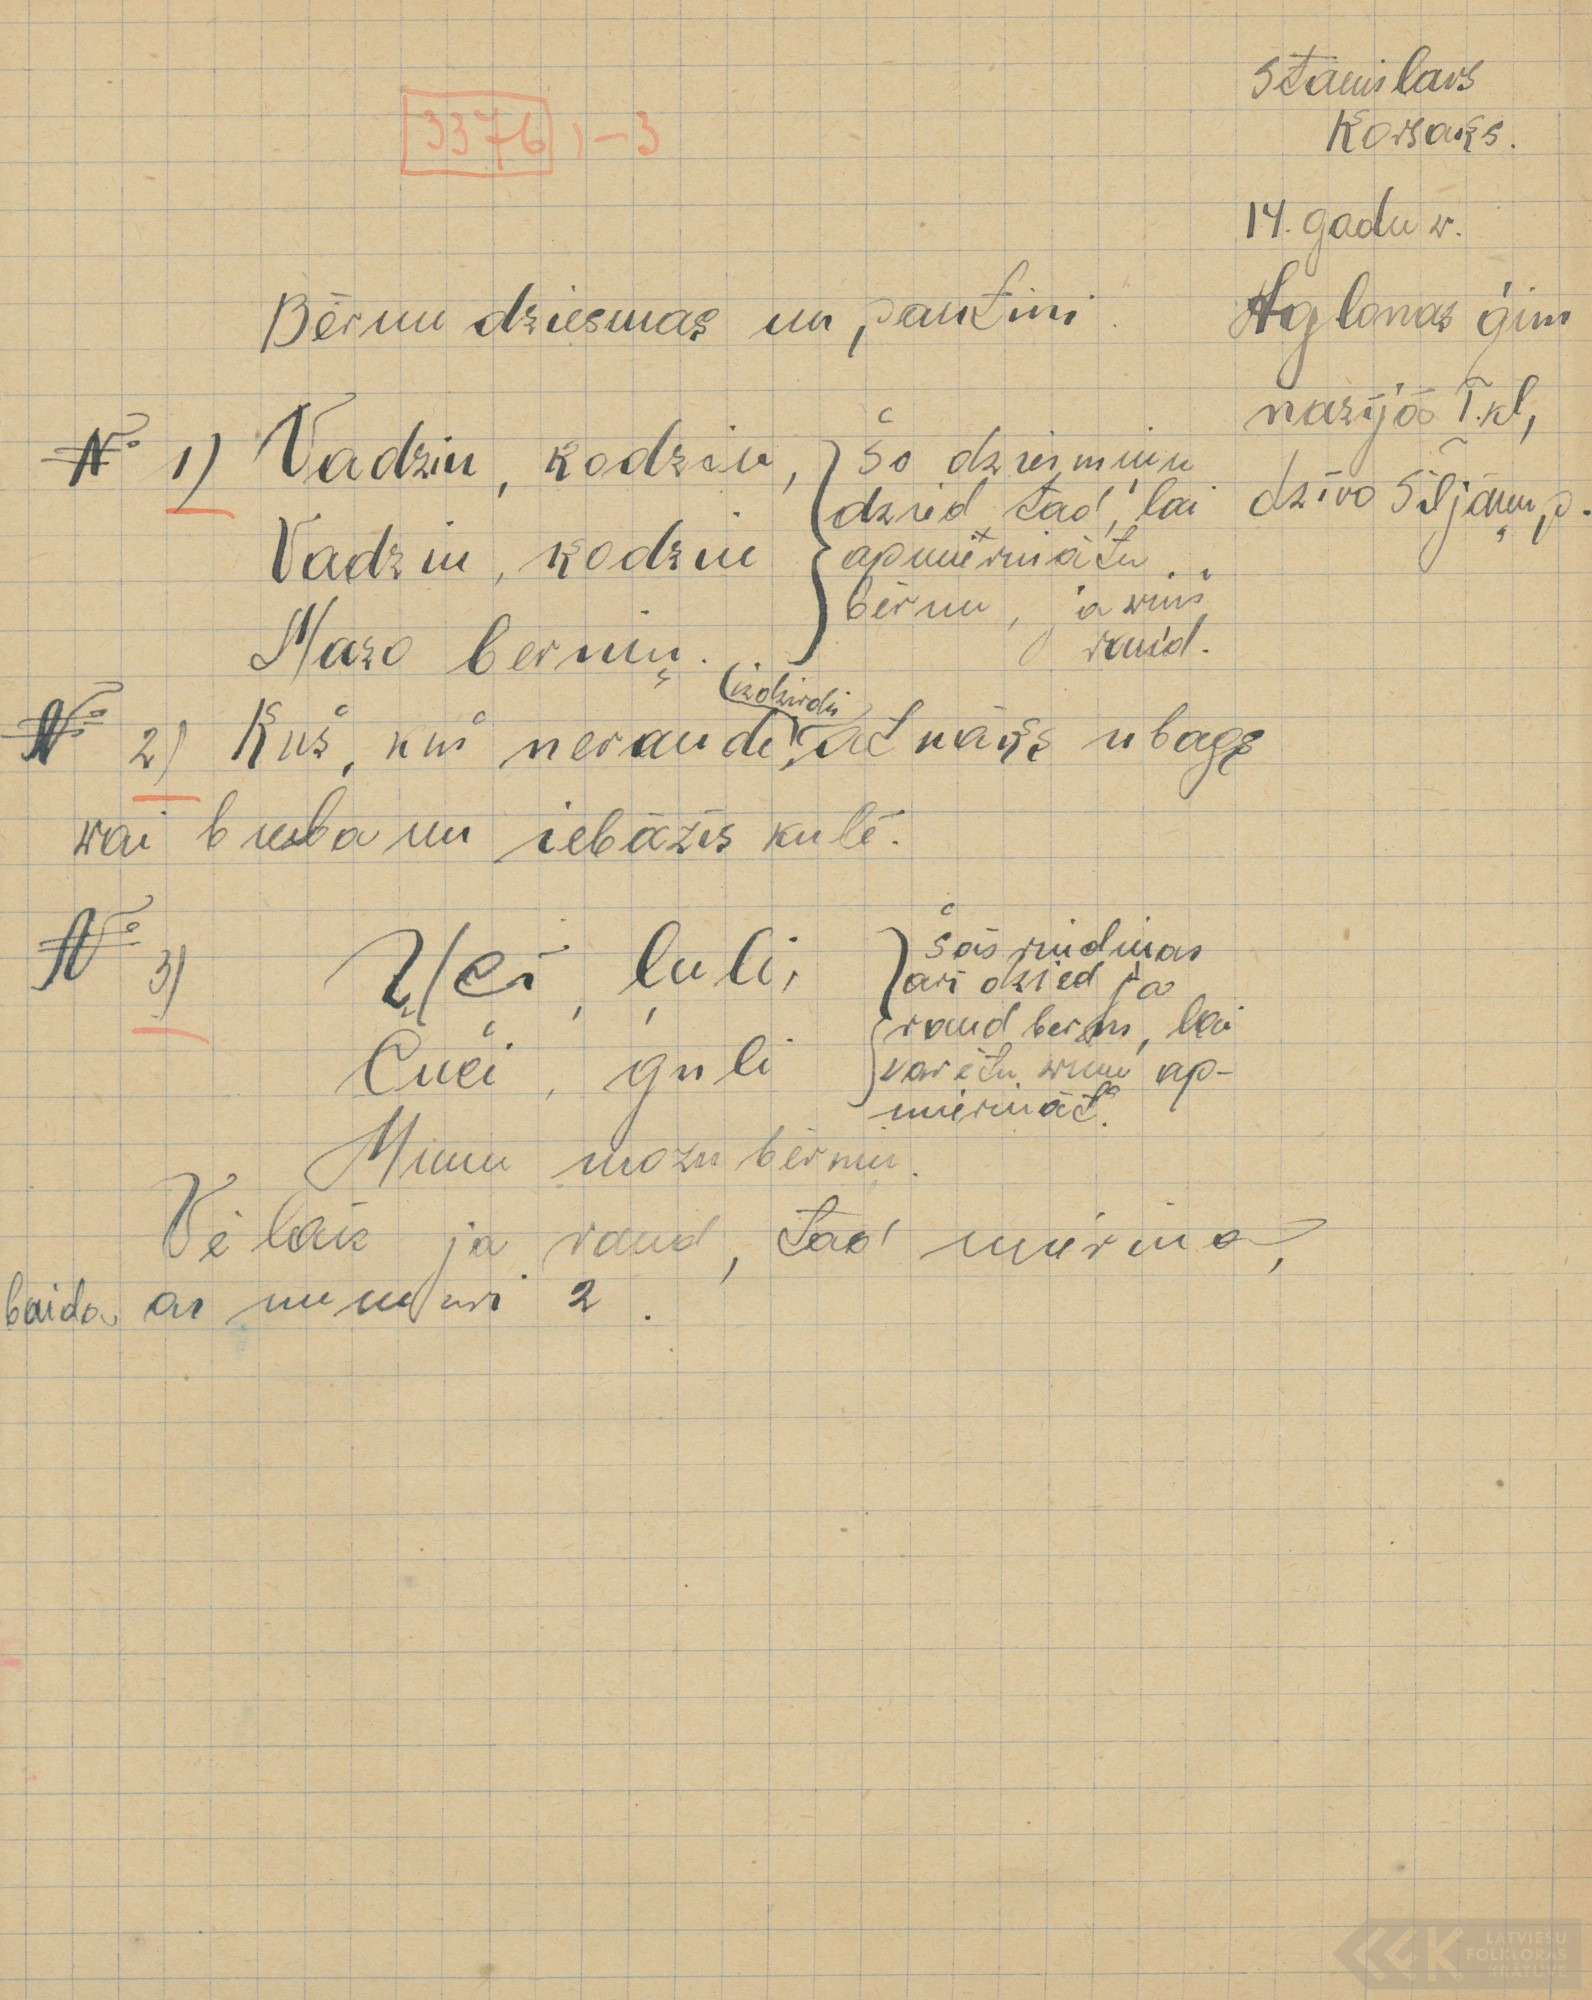 3376, 1-3
Stanislavs
Korsaks.
14. gadu w.
Aglonas ģim
nazijās I. kl,
dzīvo Siļjāņu p.
Bērnu dziesmas un pantini.
№ 1) Vadziu, kodziu,
Vadziu, kodziu
Mazo berniņ.
Šo dziesmiņu
dzied tad, lai
apmierinātu
bērnu, ja wiņš
raud.
№ 2) Kuš, kuš neraudi, atnākš ubags
(izdzirdis
wai buba un iebāzīs kulē.
№ 3) Uei, ļuli,
Čuči, guli
Munu mozu bērniņ.
Šās rindiņas
arī dzied ja
raud berns, lai
varētu wiņu ap-
mierināt.
Vēlāk ja raud, tad mierina,
baida ar numuri 2.
LATVIEŠU
FOLKLORAS
KRĀTUVE